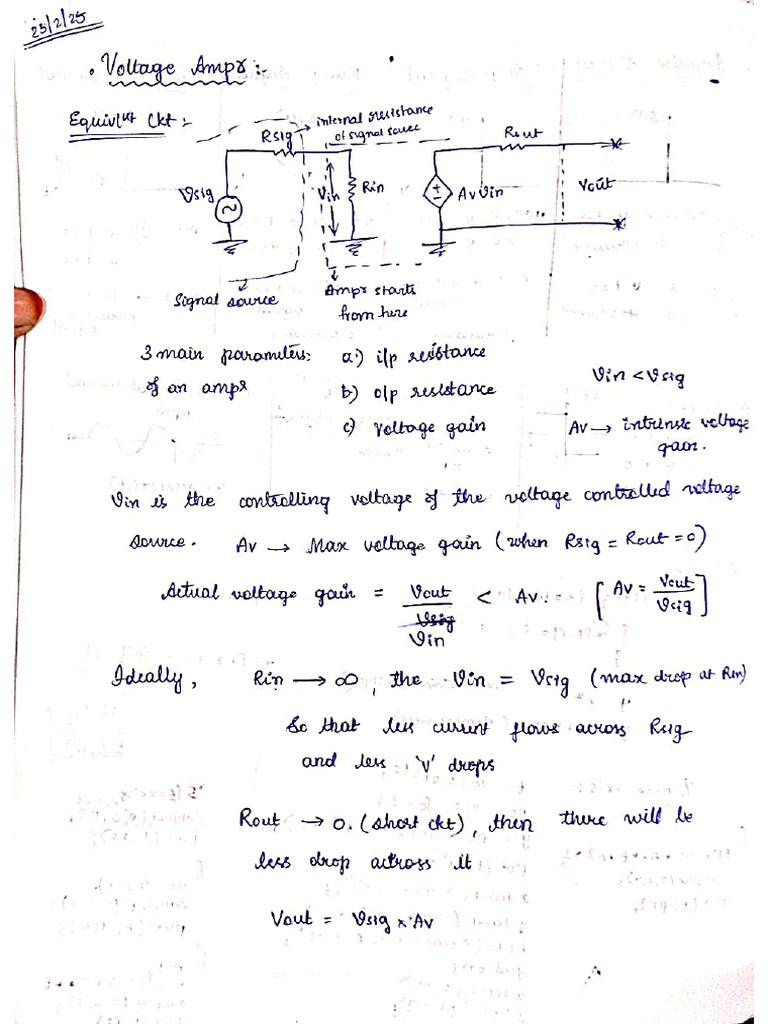 25/2/25
• Voltage Ampr:-
Equivlnt Ckt :-
internal resistance
of signal source
Rsig
Rout
Vsig
Vin
Rin
AvVin
Vout
Signal source
Ampr starts
from here
3 main parameters: a:) i/p resistance
of an ampr b) o/p resistance
c) voltage gain
Vin < Vsig
Av → intrinsic voltage
gain.
Vin is the controlling voltage of the voltage controlled voltage
source. Av → Max voltage gain (when Rsig = Rout = 0)
Actual voltage gain = Vout / Vsig Vin < Av. [Av = Vout / Vsig]
Ideally, Rin → ∞, the Vin = Vsig (max drop at Rin)
So that less current flows across Rsig
and less 'v' drops
Rout → 0. (short ckt), then there will be
less drop across it
Vout = Vsig × Av